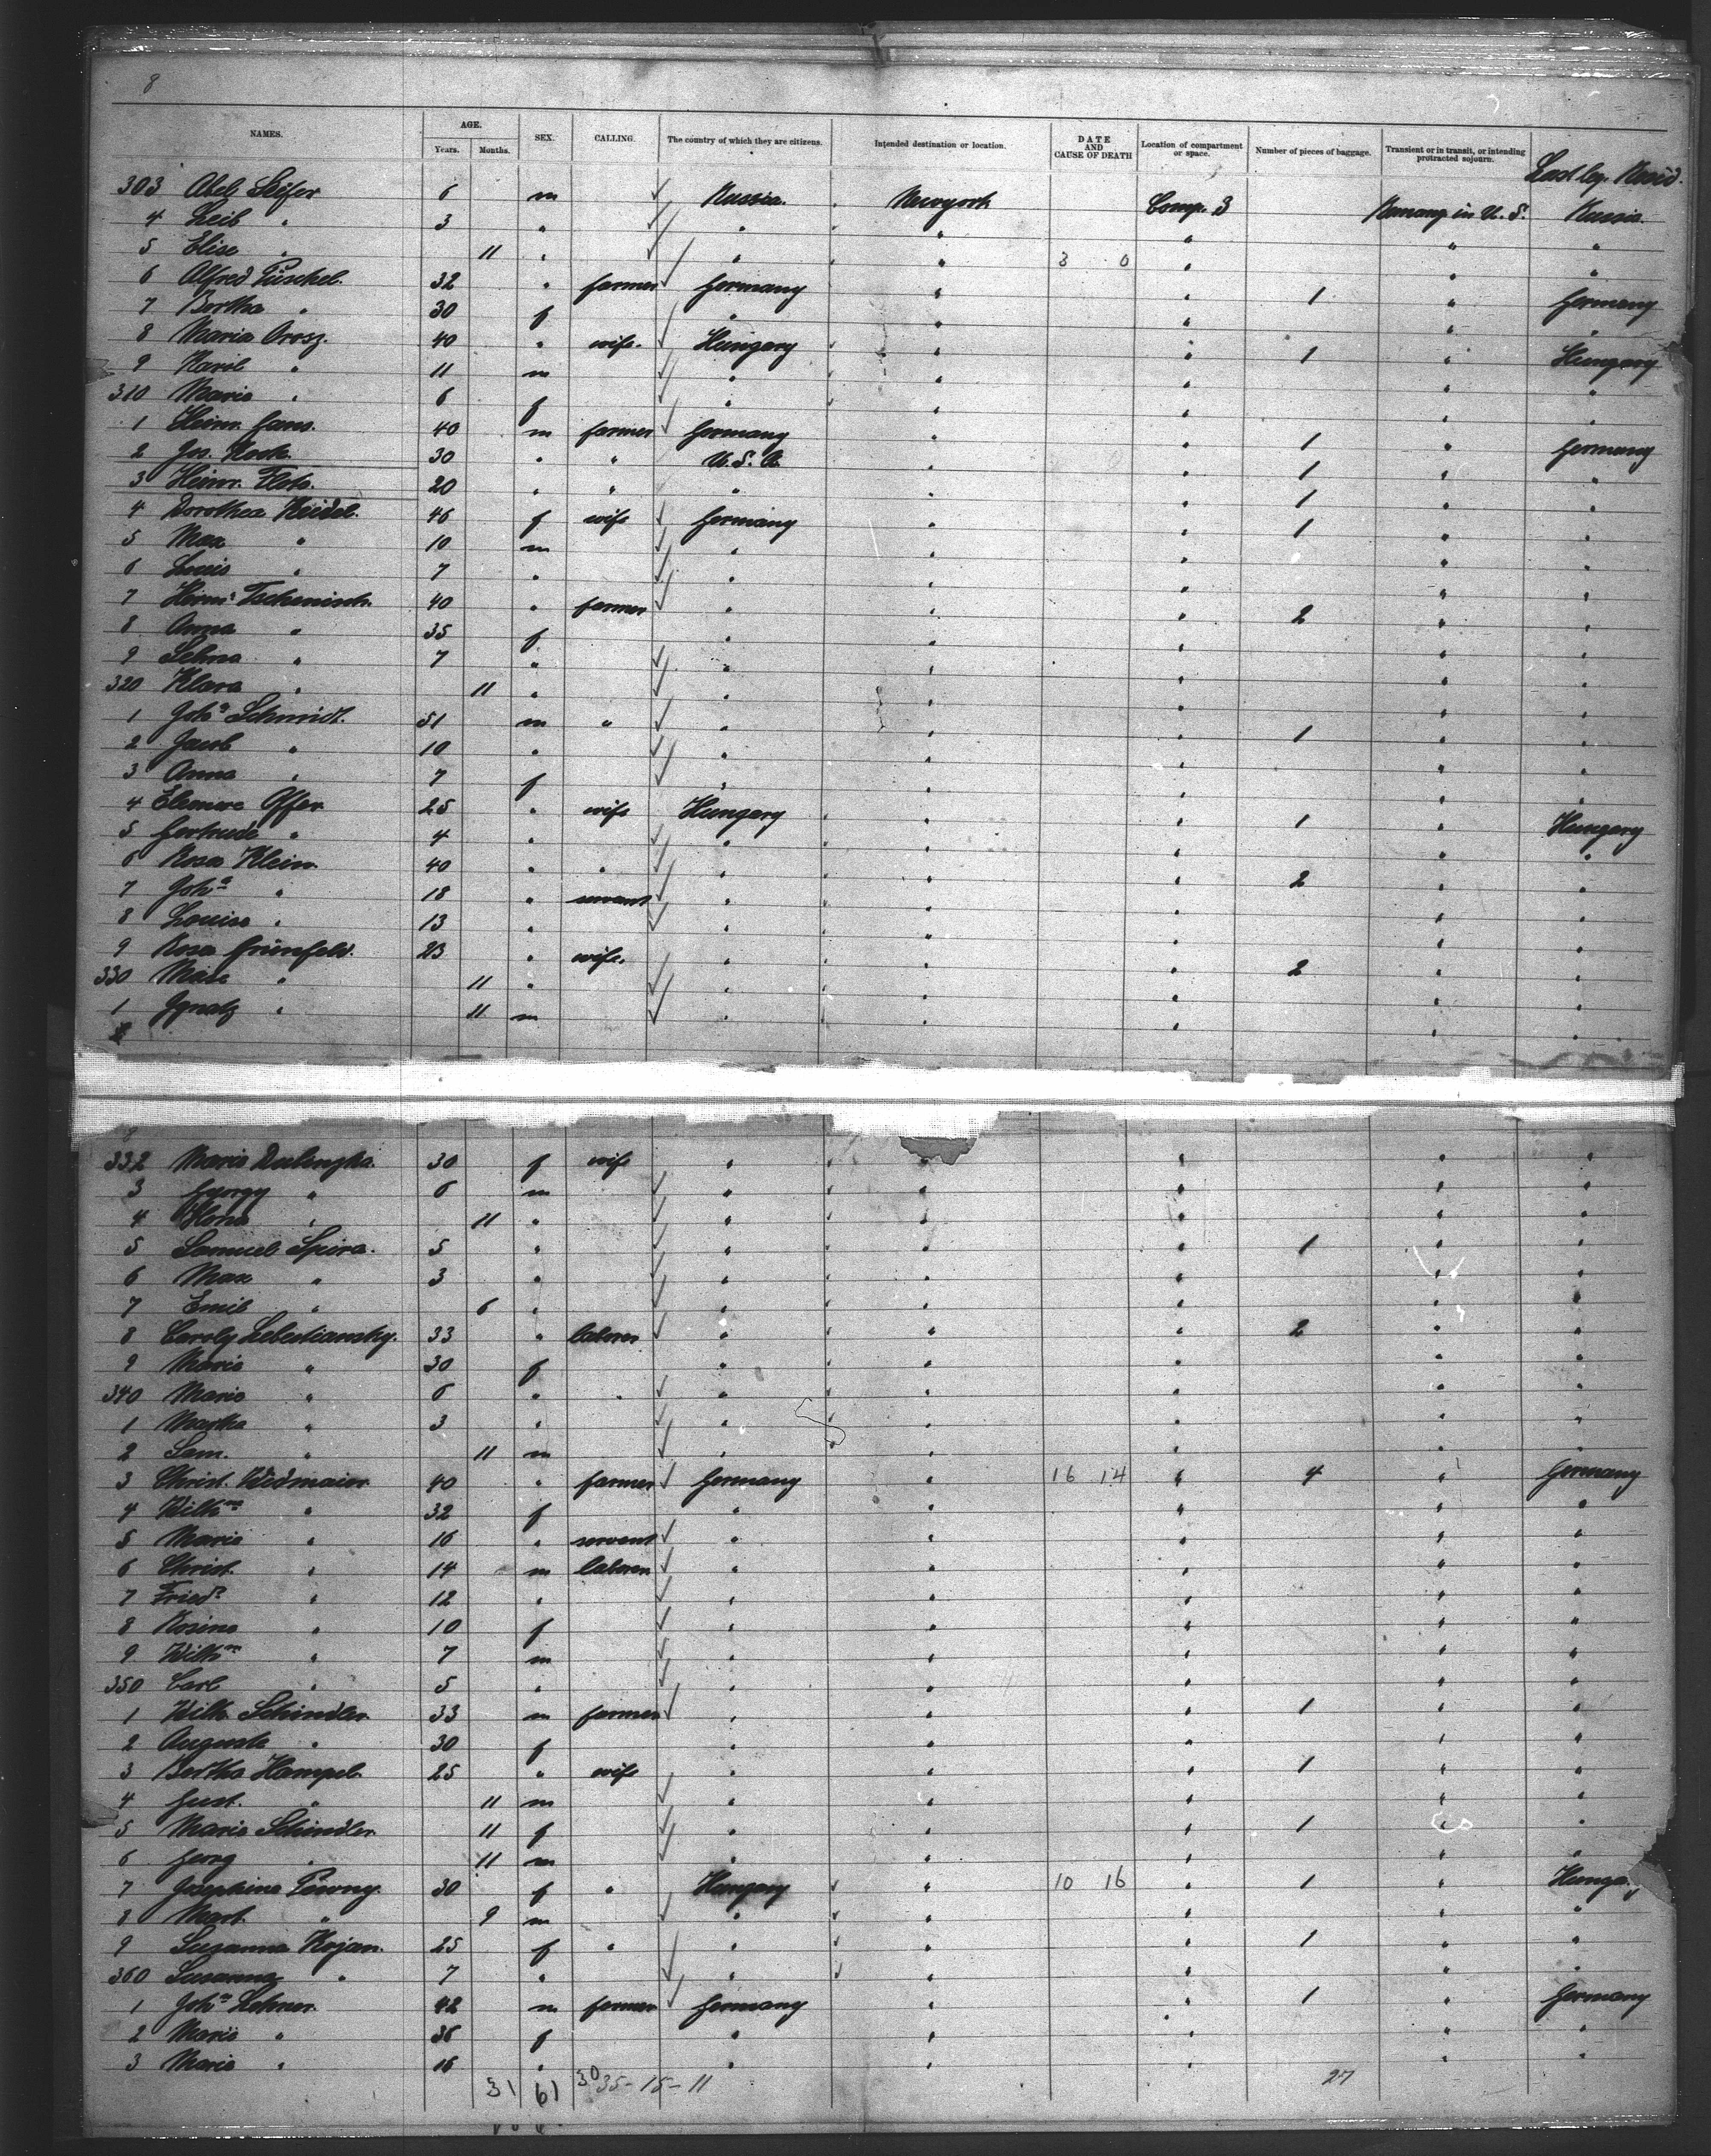 8
NAMES. AGE. SEX. CALLING. The country of which they are citizens. Intended destination or location. DATE AND CAUSE OF DEATH Location of compartment or space. Number of pieces of baggage. Transient or in transit, or intending protracted sojourn. Last leg. Resid.
Years. Months.
303 Abel Seifer 6 m Russia. Newyork Comp. 3 Remang in U.S. Russia.
4 Leib " 3 " " " " " "
5 Elise " 11 " " " 3 0 " " "
6 Alfred Püschel. 32 " farmer Germany " " 1 " Germany
7 Bertha " 30 f " " " " "
8 Maria Orosz. 40 " wife. Hungary " " 1 " Hungary
9 Karil " 11 m " " " " "
310 Maria " 6 f " " " " "
1 Heinr. Gans. 40 m farmer Germany " " 1 " Germany
2 Jos. Koch. 30 " " U.S.A. " " 1 " "
3 Heinr. 20 " " " " " 1 " "
4 Dorothea Weidel. 46 f wife Germany " " 1 " "
5 Max " 10 m " " " " "
6 Louis " 7 " " " " " "
7 Herm. Tschenisch. 40 " farmer " " " 2 " "
8 Anna " 35 f " " " " "
9 Selma " 7 " " " " " "
320 Klara " 11 " " " " " "
1 Joh.n Schmidt. 51 m " " " " 1 " "
2 Jacob " 10 " " " " " "
3 Anna " 7 f " " " " "
4 Eleonore Offer. 25 " wife Hungary " " 1 " Hungary
5 Gertrude " 4 " " " " " "
6 Rosa Klein. 40 " " " " " 2 " "
7 Joh.a " 18 " servant " " " " "
8 Louise " 13 " " " " " "
9 Rosa Grünfeld. 23 " wife. " " " 2 " "
330 " 11 " " " " " "
1 Ignatz " 11 m " " " " "
332 Maria 30 f wife " " " " "
3 Georgy " 6 m " " " " "
4 " 11 " " " " " "
5 Samuel Spira. 5 " " " " 1 " "
6 Max " 3 " " " " " "
7 Emil " 6 " " " " " "
8 Caroly Lebediansky. 33 " laborer " " " 2 " "
9 Maria " 30 f " " " " "
340 Maria " 6 " " " " " "
1 Martha " 3 " " " " " "
2 Sam. " 11 m " " " " "
3 Christ. Widmaier 40 " farmer Germany " 16 14 " 4 " Germany
4 Wilh.ne " 32 f " " " " "
5 Maria " 16 " servant " " " " "
6 Christ. " 14 m laborer " " " " "
7 Fried. " 12 " " " " " "
8 Rosina " 10 f " " " " "
9 Wilh.m " 7 m " " " " "
350 Carl " 5 " " " " " "
1 Wilh. Schindler 33 m farmer " " " 1 " "
2 Auguste " 30 f " " " " "
3 Bertha Hampel. 25 " wife " " " 1 " "
4 Gust. " 11 m " " " " "
5 Maria Schindler 11 f " " " 1 " "
6 Georg " 11 m " " " " "
7 Josephine 30 f " Hungary " 10 16 " 1 " Hunga
8 Mart. " 9 m " " " " "
9 Susanna Kojan. 25 f " " " " 1 " "
360 Susanna " 7 " " " " " "
1 Joh.n Lehner. 42 m farmer Germany " " 1 " Germany
2 Maria " 36 f " " " " "
3 Maria " 16 " " " " " "
31 61 30 35-15-11 27